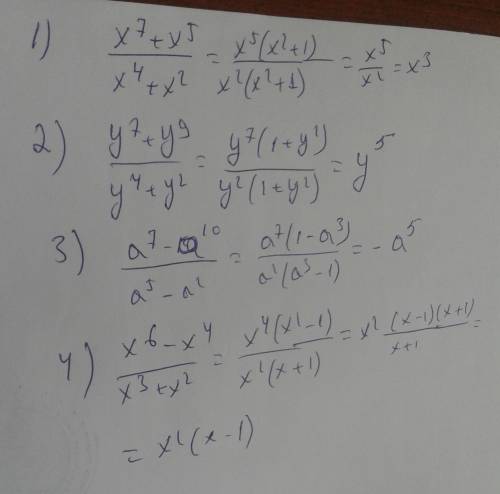 1) (x⁷+x⁵)/(x⁴+x²) = x⁵(x²+1)/(x²(x²+1)) = x⁵/x² = x³
2) (y⁷+y⁹)/(y⁴+y²) = y⁷(1+y²)/(y²(1+y²)) = y⁵
3) (a⁷-a¹⁰)/(a⁵-a²) = a⁷(1-a³)/(a²(a³-1)) = -a⁵
4) (x⁶-x⁴)/(x³+x²) = x⁴(x²-1)/(x²(x+1)) = x² (x-1)(x+1)/(x+1) =
= x²(x-1)